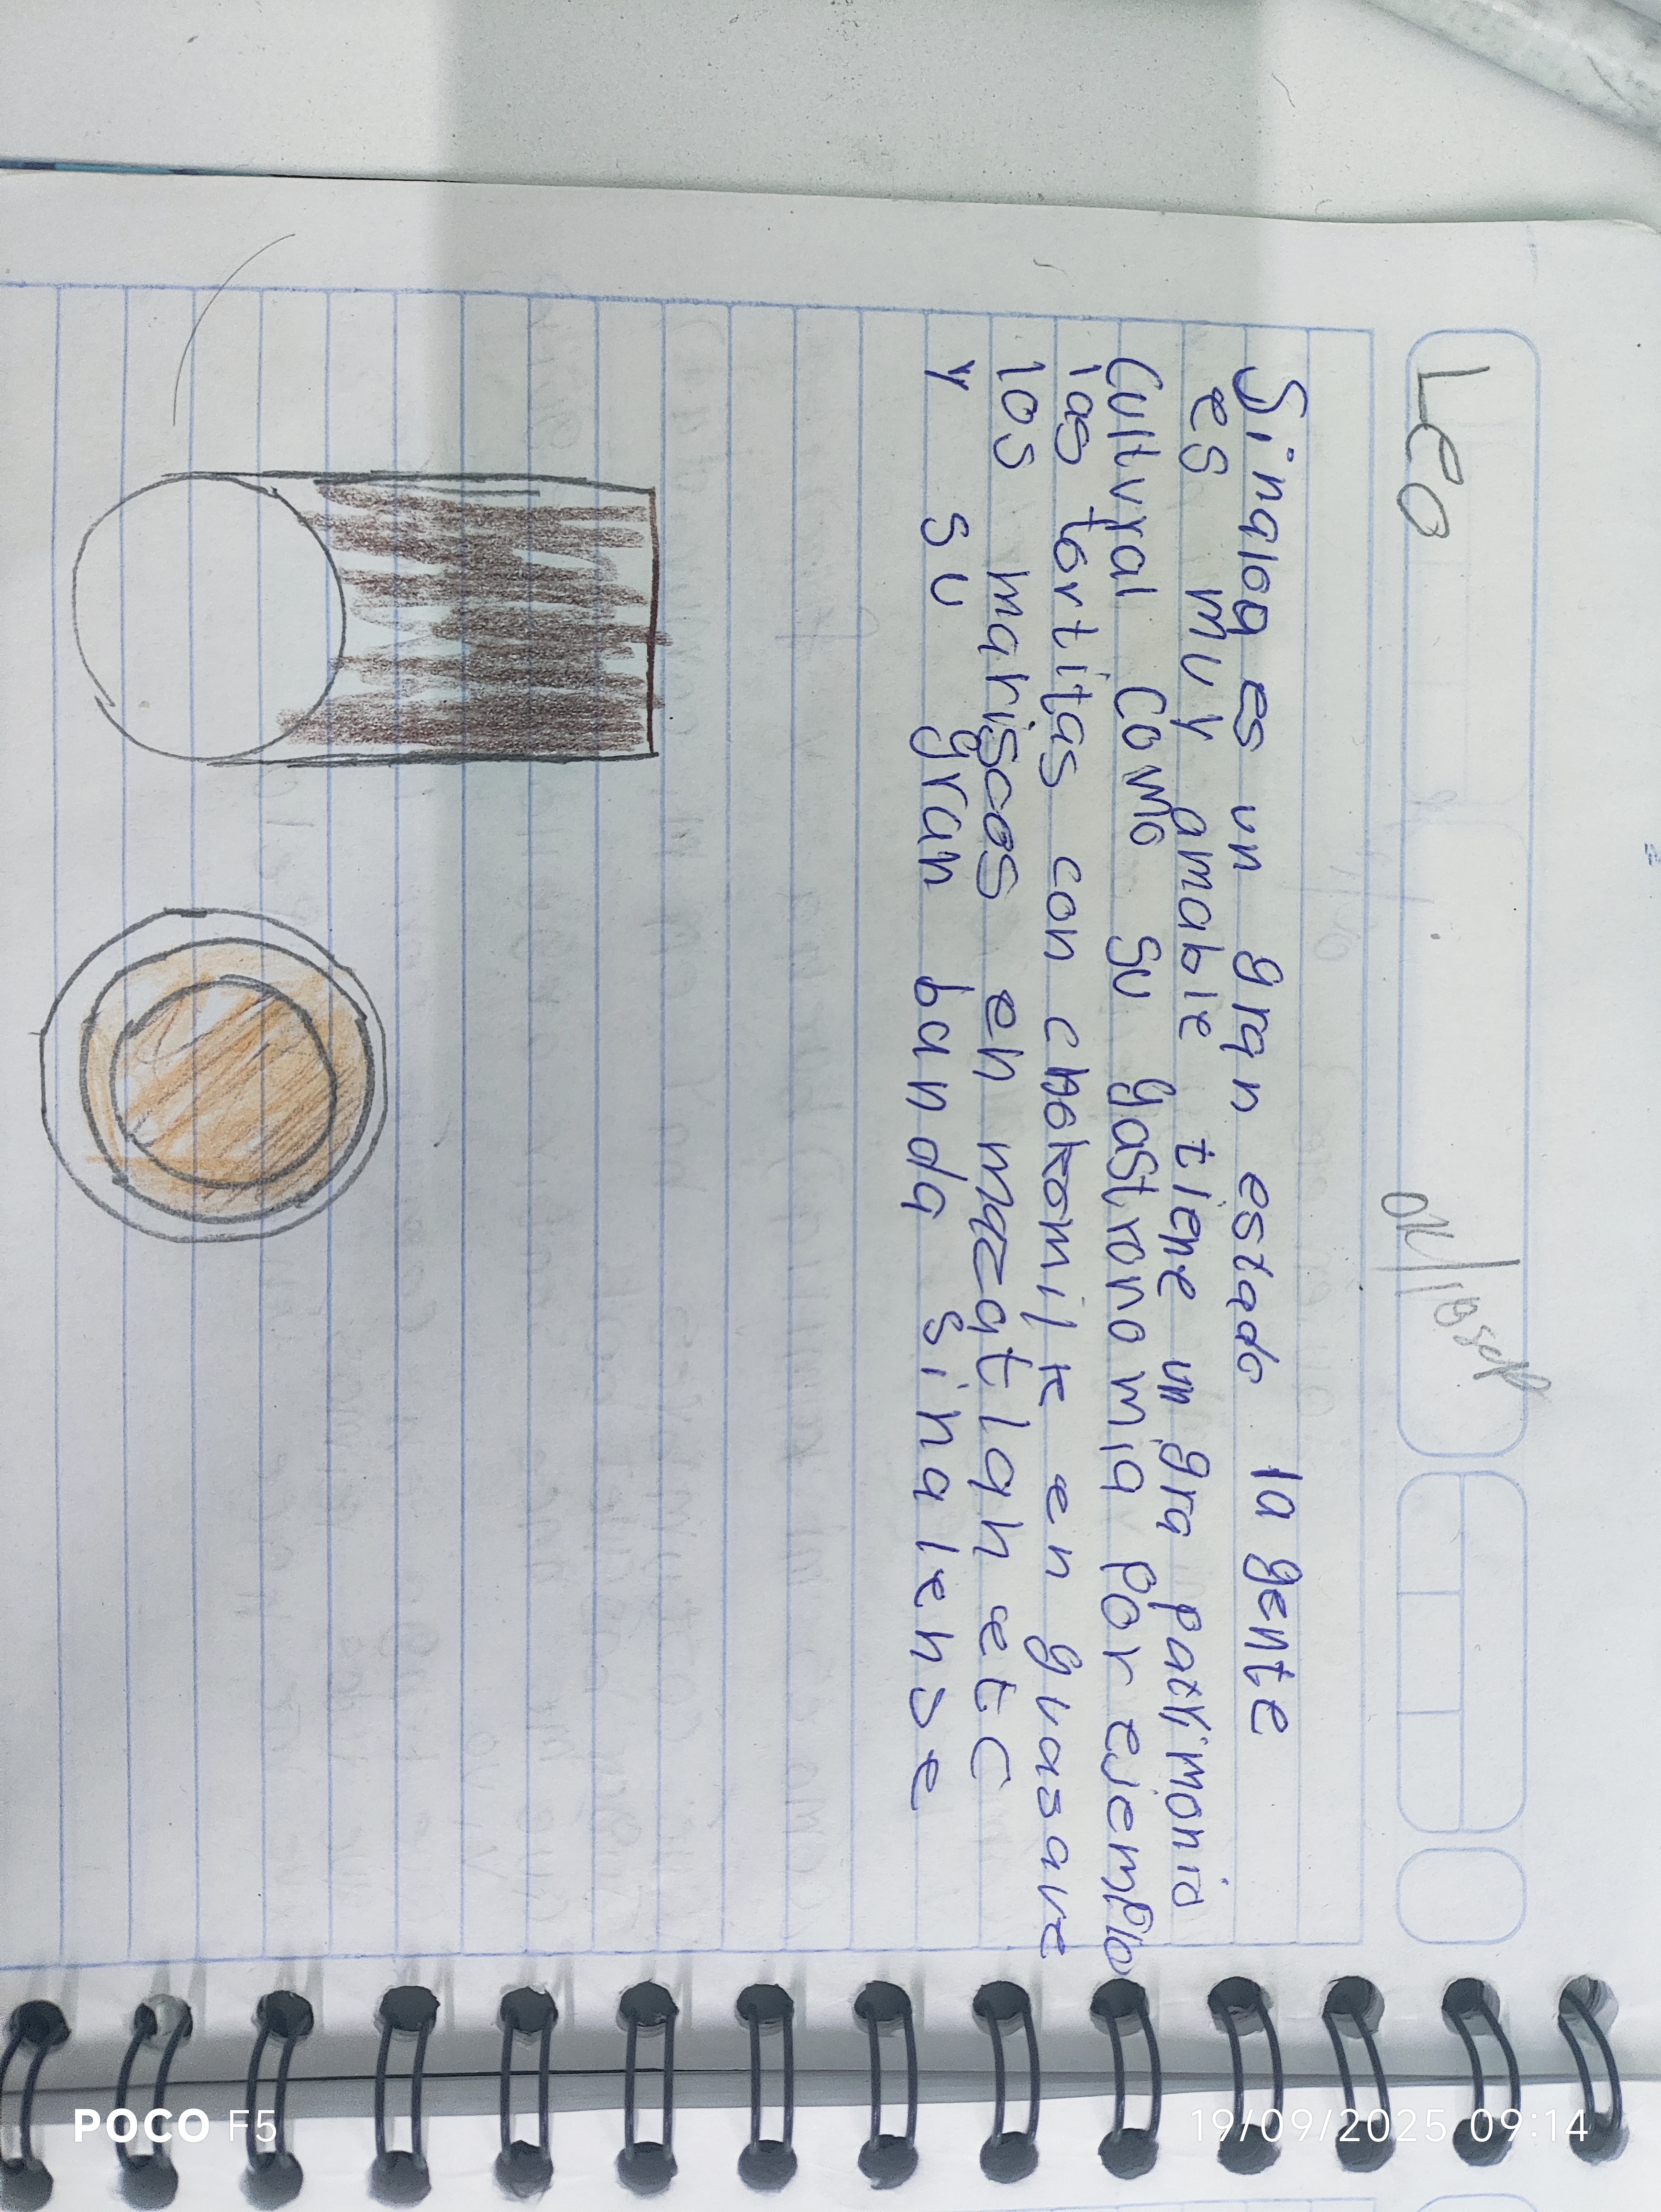 Leo
Sinaloa es un gran estado la gente
es muy amable tiene un gra patrimonio
Cultural como su gastronomia por ejemplo
las tortitas con chokomilk en guasave
los mariscos en mazatlan etc
y su gran banda sinalense
POCO F5
19/09/2025 09:14